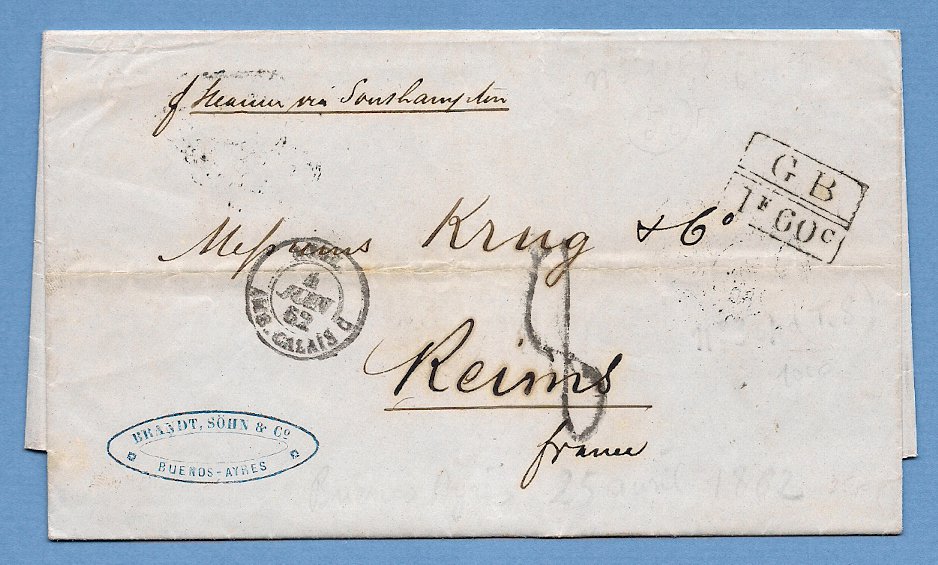 p Steamer via Southampton
G B
1F 60c
Messieurs Krug & Co
ANGL.
4
JUIN
62
AMB. CALAIS D
8
Reims
france
BRANDT, SÖHN & Co
BUENOS-AYRES
Buenos Ayres 25 avril 1862